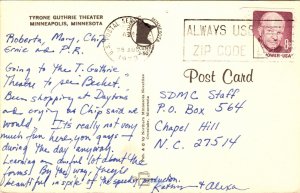 TYRONE GUTHRIE THEATER
MINNEAPOLIS, MINNESOTA
Roberta, Mary, Chip
Ernie and P.R.
Going to the T. Guthrie
Theatre to see "Becket."
Been shopping at Daytons
and enjoying as Chip said we
would. It's really not very
much fun here, you guys,
during the day anyway.
Learning an awful lot about the
forms. By the way, they're
beautiful in spite of the production.
ALWAYS USE
ZIP CODE
8c
Post Card
SDMC Staff
P.O. Box 564
Chapel Hill
N.C. 27514
+ Alexa